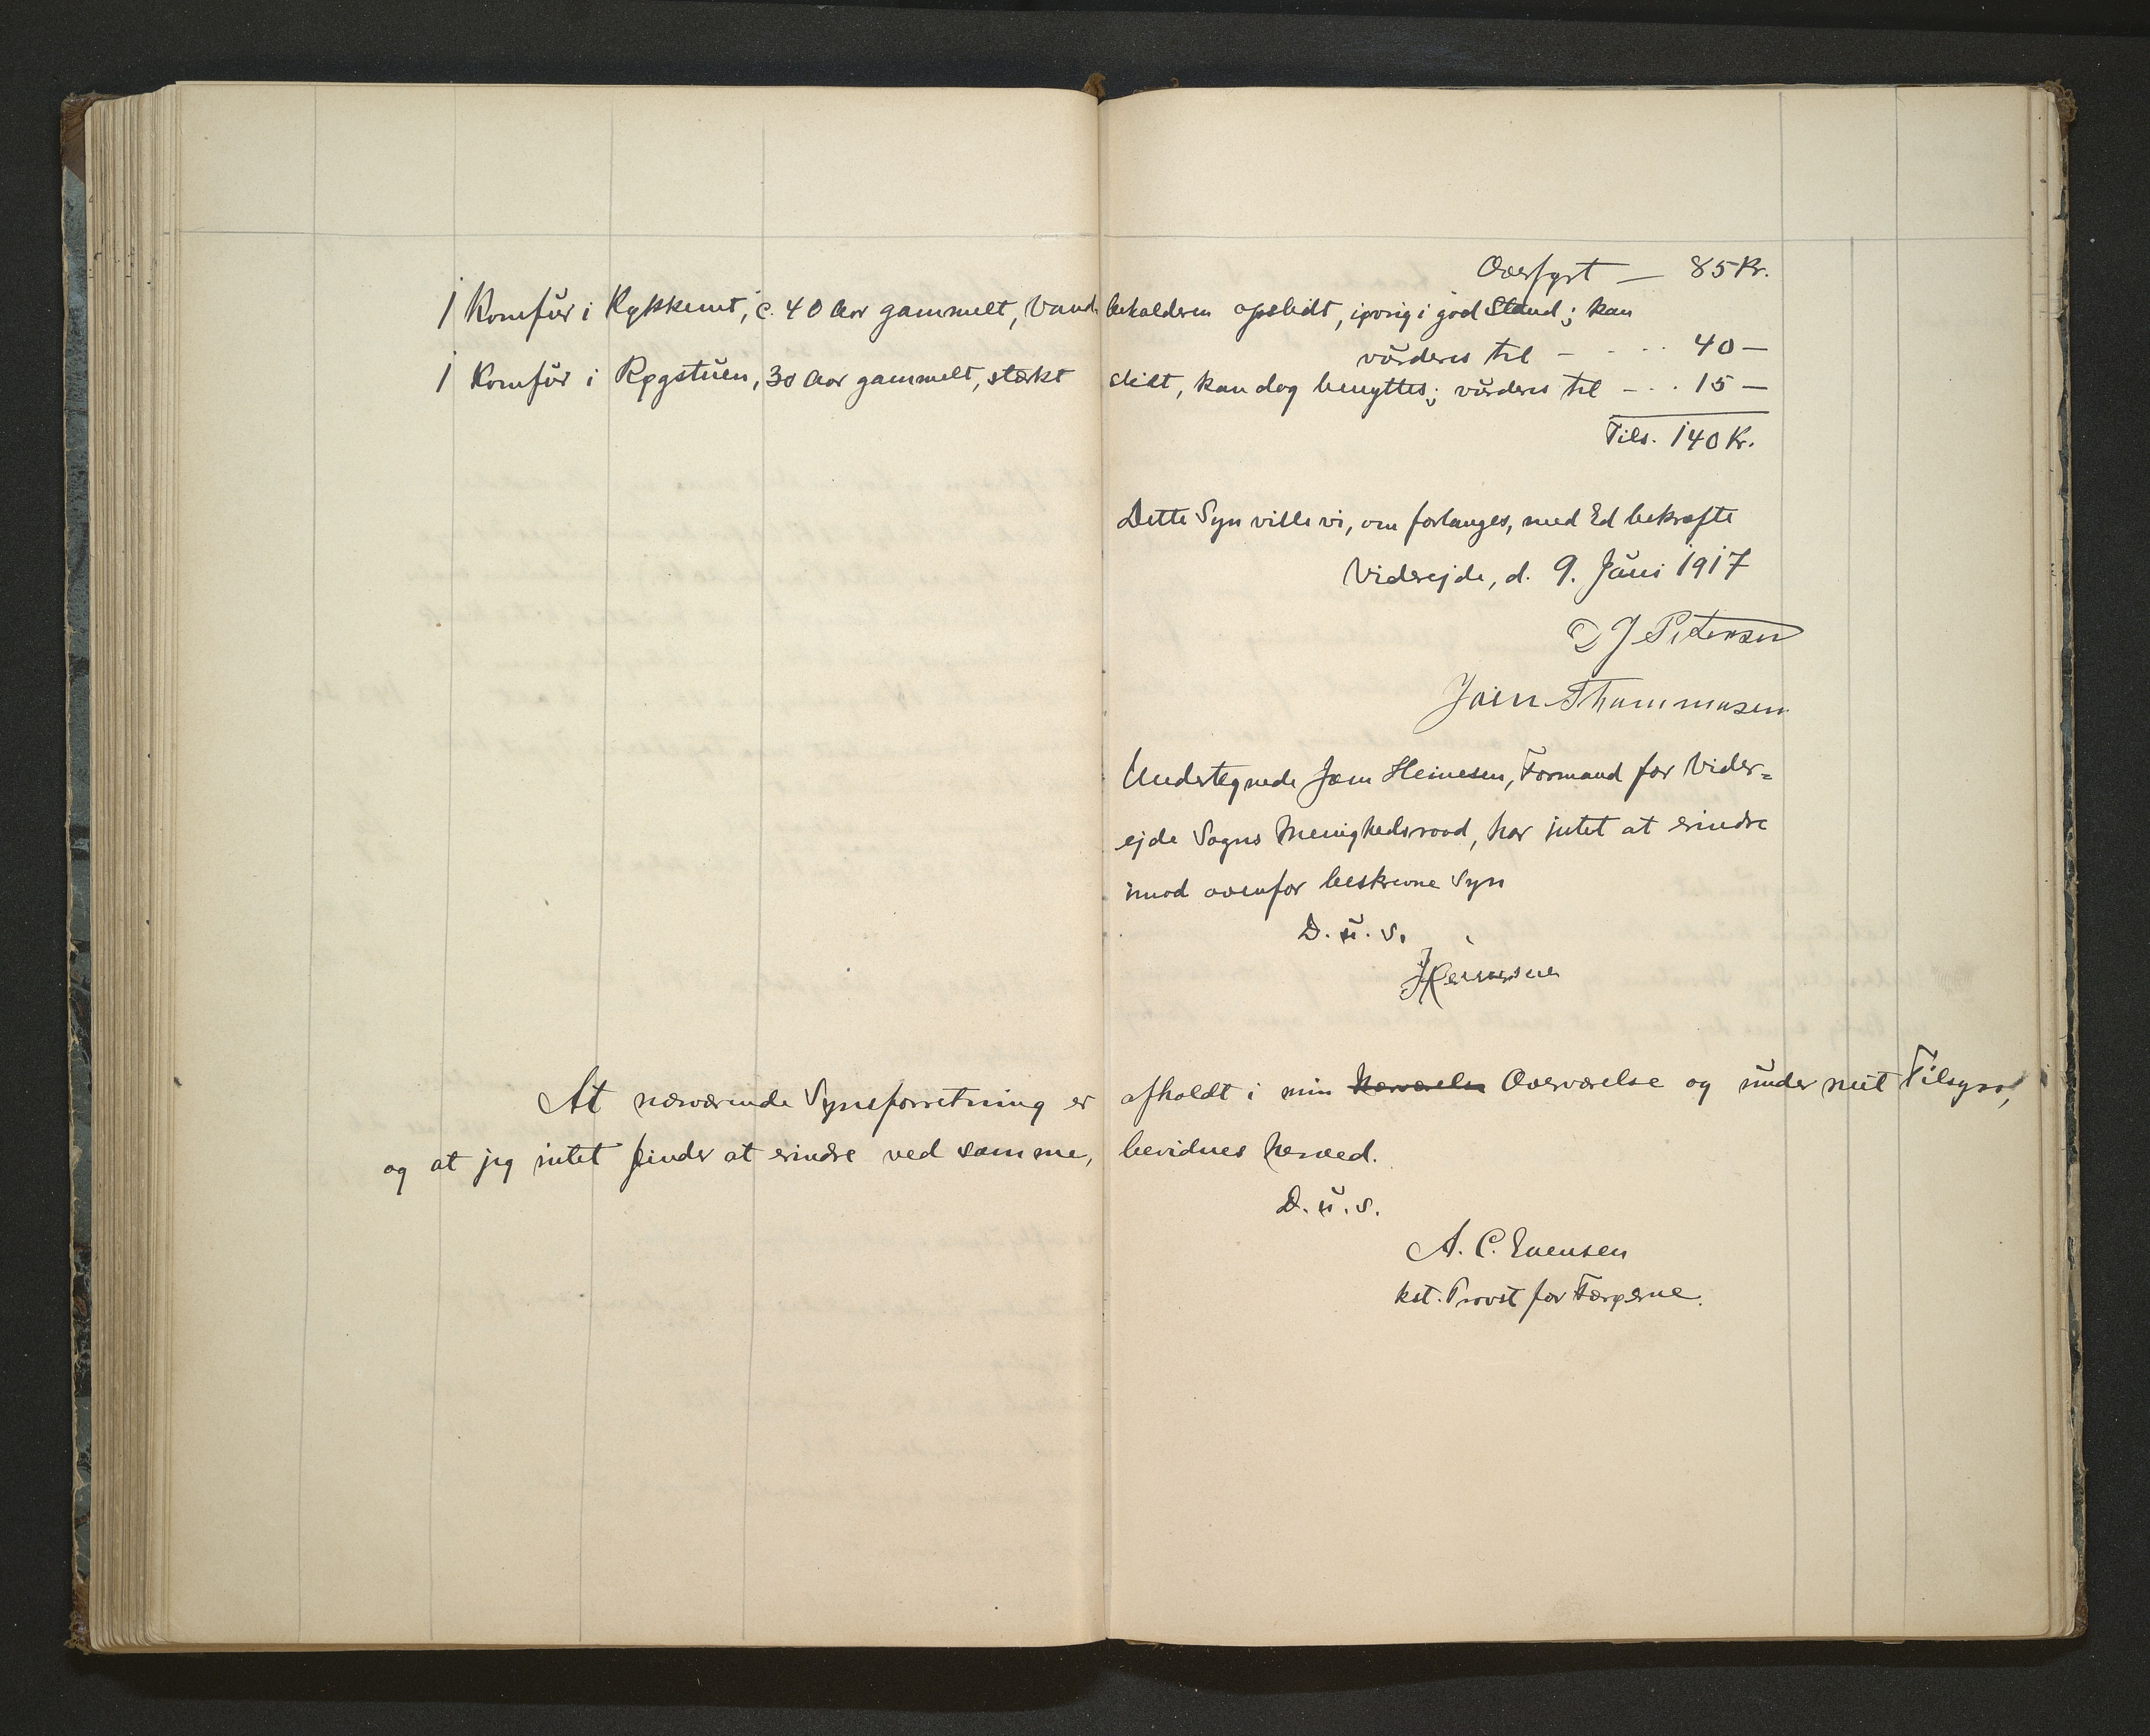 Overført — 85 Kr.
1 Komfur i Køkkenet, c. 40 Aar gammelt, Vandbeholderen opslidt, iøvrig i god Stand; kan
vurderes til — - - - 40 —
1 Komfur i Røgstuen, 30 Aar gammelt, stærkt slidt, kan dog benyttes; vurderes til — - - 15 —
Tils. 140 Kr.
Dette Syn ville vi, om forlanges, med Ed bekræfte
Viderejde, d. 9. Juni 1917
D J Petersen
Joen Thommasen
Undertegnede Joen Heinesen, Formand for Vider=
ejde Sogns Menighedsraad, har intet at erindre
imod ovenfor beskrevne Syn
D. u. S.
J Heinesen
At nærværende Synsforretning er afholdt i min Nærværelse Overværelse og under mit Tilsyn,
og at jeg intet finder at erindre ved samme, bevidnes herved.
D. u. S.
A. C. Evensen
kst. Provst for Færøerne.